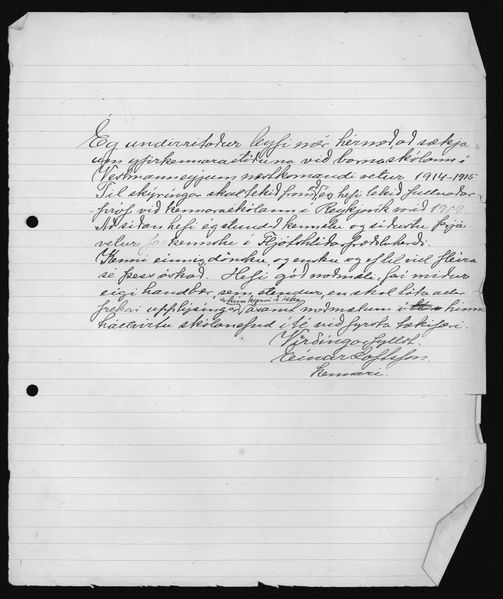 Eg undirritaður leyfi mér hérmeð, að sækja
um yfirkennarastöðuna við barnaskólann í
Vestmannaeyjum næstkomandi vetur 1914-1915
Til skýringar skal tekið fram að eg hefi tekið fullnaðar
próf við kennaraskólann í Reykjavík vorið 1909
Að síðan hefi eg stundað kennslu og síðustu þrjá
vetur kennslu í Fljótshlíðar
Kenni einnig dönsku og ensku og ef til vill fleira
sé þess óskað. Hefi góð meðmæli, þó miður
eigi handbær sem stendur, en skal láta allar
frekari upplýsingar ásamt meðmælum í hinni
háttvirtu skólanefnd í té, við fyrsta tækifæri.
Virðingarfyllst.
Einar Loftsson
kennari.